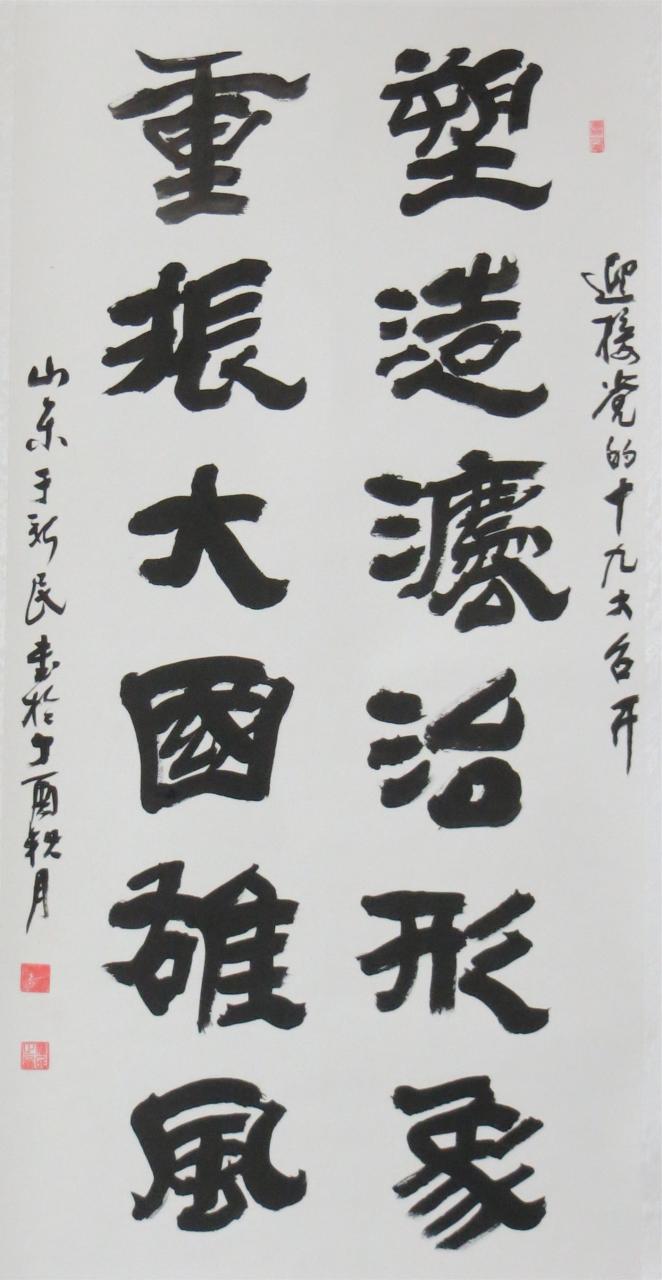 迎接党的十九大召开
塑造灋治形象
重振大國雄風
山东于新民书於丁酉秋月